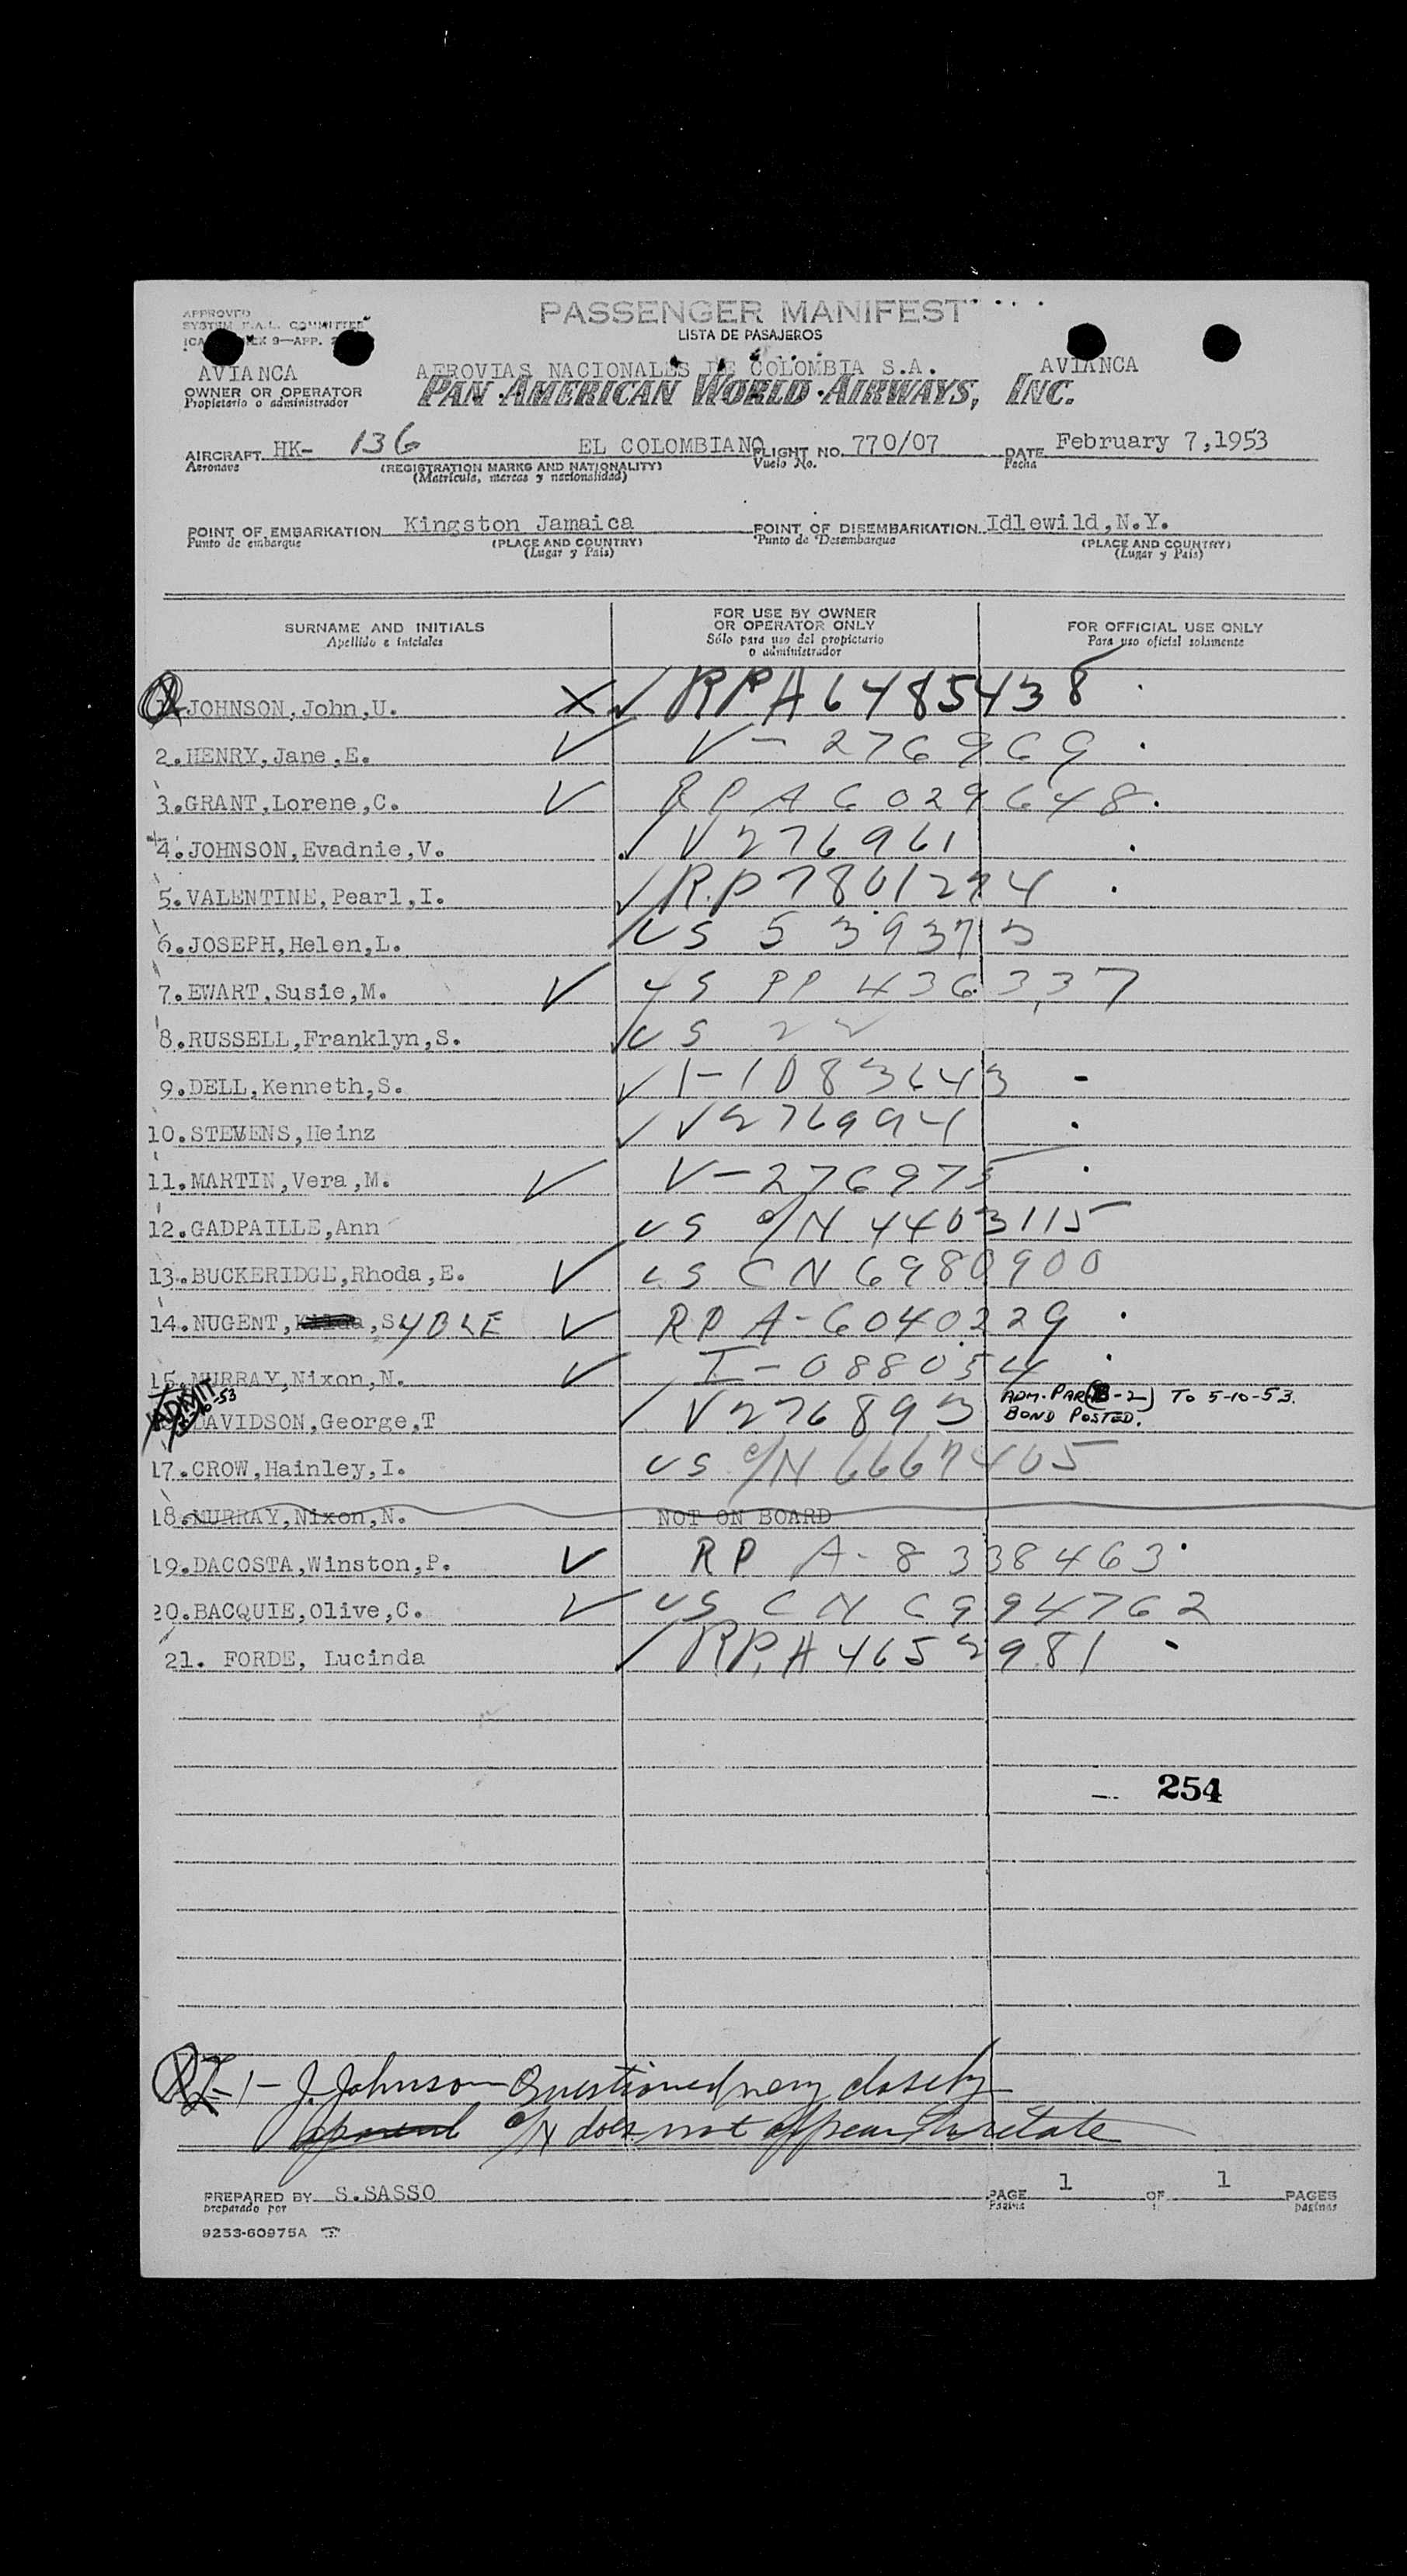 APPROVED PASSENGER MANIFEST
SYSTEM F.A.L. COMMITTEE LISTA DE PASAJEROS
9—APP.
AVIANCA AEROVIAS NACIONALES DE COLOMBIA S.A. AVIANCA
OWNER OR OPERATOR PAN AMERICAN WORLD AIRWAYS, INC.
Propietario o administrador
AIRCRAFT HK- 136 EL COLOMBIANO FLIGHT NO. 770/07 DATE February 7,1953
Aeronave (REGISTRATION MARKS AND NATIONALITY) Vuelo No. Fecha
(Matricula, marcas y nacionalidad)
POINT OF EMBARKATION Kingston Jamaica POINT OF DISEMBARKATION Idlewild, N.Y.
Punto de embarque (PLACE AND COUNTRY) Punto de Desembarque (PLACE AND COUNTRY)
(Lugar y Pais) (Lugar y Pais)
SURNAME AND INITIALS FOR USE BY OWNER OR OPERATOR ONLY FOR OFFICIAL USE ONLY
Apellido e iniciales Sólo para uso del propietario o administrador Para uso oficial solamente
JOHNSON,John,U. X ✓ RPA6485438
2.HENRY,Jane,E. ✓ V-276969
3.GRANT,Lorene,C. ✓ RPA6029648.
4.JOHNSON,Evadnie,V. ✓ V276961
5.VALENTINE,Pearl,I. ✓ R.P7801274
6.JOSEPH,Helen,L. ✓ US 539373
7.EWART,Susie,M. ✓ US PP 436337
8.RUSSELL,Franklyn,S. ✓ US 22
9.DELL,Kenneth,S. ✓ I-1083643 -
10.STEVENS,Heinz ✓ V276994
11.MARTIN,Vera,M. ✓ V-276975
12.GADPAILLE,Ann US C/N 4403115
13.BUCKERIDGE,Rhoda,E. ✓ US CN 6980900
14.NUGENT, ,SYBLE ✓ RP A-6040229
15.MURRAY,Nixon,N. ✓ I-088054
ADMIT DAVIDSON,George,T ✓ V276893 ADM. PAR(B-2) TO 5-10-53.
BOND POSTED.
17.CROW,Hainley,I. US C/N 6667405
18.MURRAY,Nixon,N. NOT ON BOARD
19.DACOSTA,Winston,P. ✓ RP A-8338463
20.BACQUIE,Olive,C. ✓ US CN C994762
21. FORDE, Lucinda ✓ RP.A4652981 -
254
1- J. Johnson Questioned very closely
C/N does not appear
PREPARED BY S.SASSO PAGE 1 OF 1 PAGES
preparado por Página páginas
9253-60975A